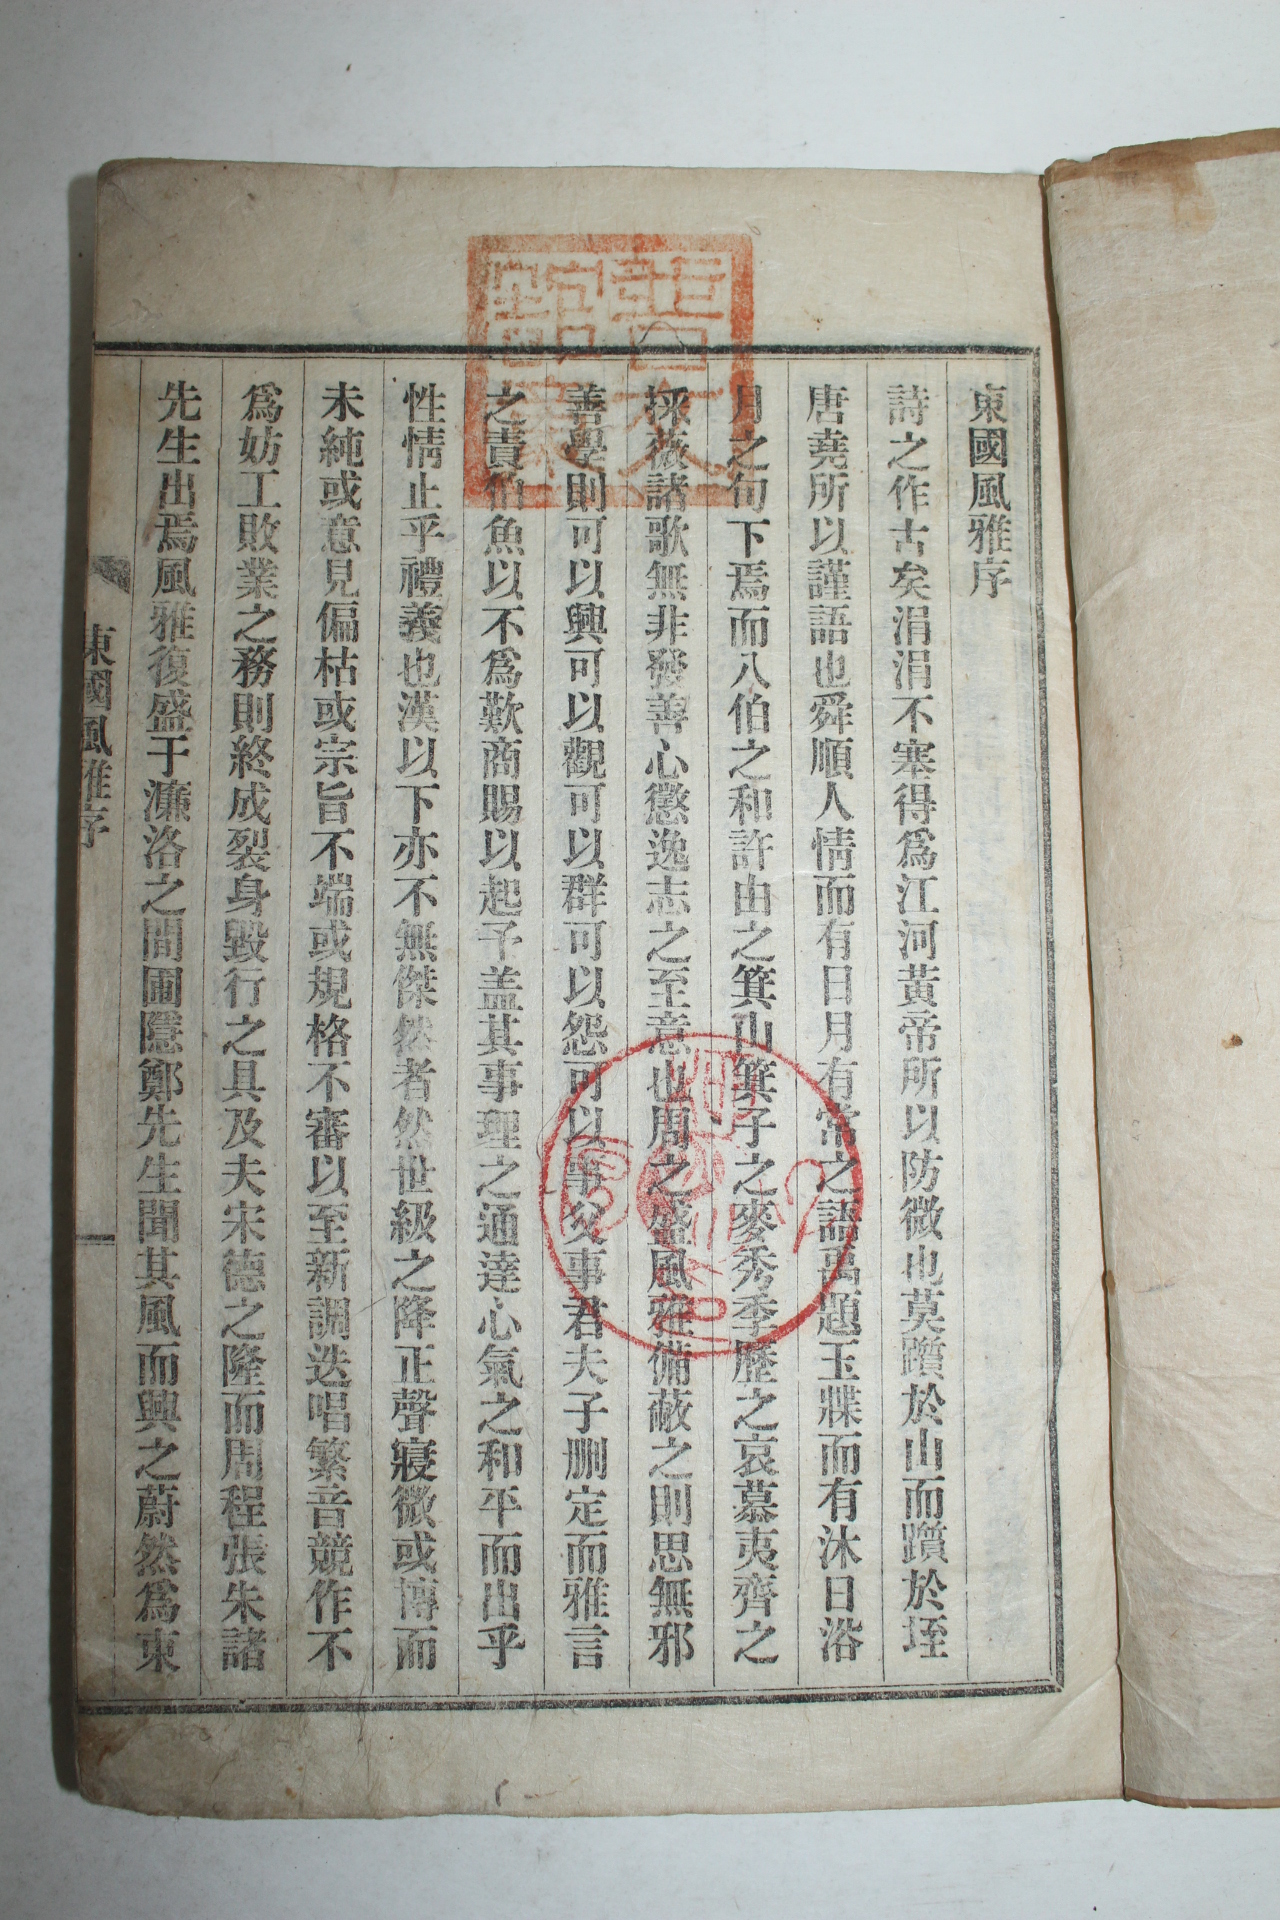 東國風雅序
詩之作古矣涓涓不塞得爲江河黃帝所以防微也莫躓於山而躓於垤
唐堯所以謹語也舜順人情而有日月有常之語禹題玉牒而有沐日浴
月之句下焉而八伯之和許由之箕山箕子之麥秀季歷之哀慕夷齊之
採薇諸歌無非發善心懲逸志之至意也周之盛風雅備蔽之則思無邪
善學則可以興可以觀可以群可以怨可以事父事君夫子刪定而雅言
之責伯魚以不爲歎商賜以起予盖其事理之通達心氣之和平而出乎
性情止乎禮義也漢以下亦不無傑然者然世級之降正聲寢微或博而
未純或意見偏枯或宗旨不端或規格不審以至新調迭唱繁音競作不
爲妨工敗業之務則終成裂身毀行之具及夫宋德之隆而周程張朱諸
先生出焉風雅復盛于濂洛之間圃隱鄭先生聞其風而興之蔚然爲東
東國風雅序
一